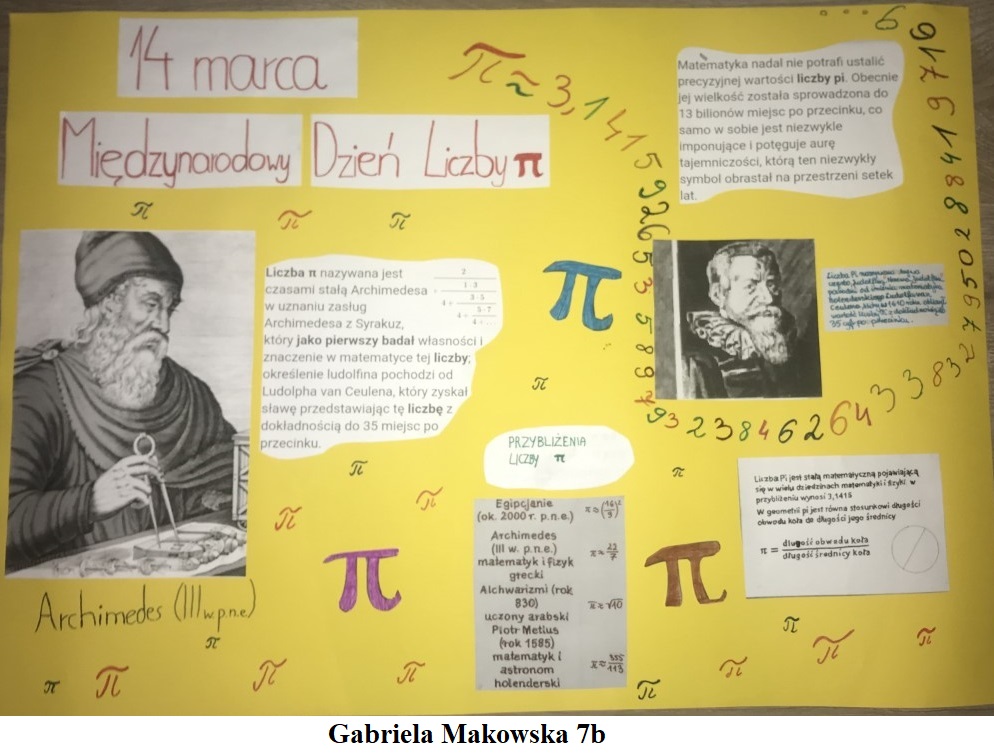 14 marca
Międzynarodowy Dzień Liczby π
π ≈ 3,141592653589793238462643383279502884197196...
Matematyka nadal nie potrafi ustalić
precyzyjnej wartości liczby pi. Obecnie
jej wielkość została sprowadzona do
13 bilionów miejsc po przecinku, co
samo w sobie jest niezwykle
imponujące i potęguje aurę
tajemniczości, którą ten niezwykły
symbol obrastał na przestrzeni setek
lat.
Liczba π nazywana jest
czasami stałą Archimedesa
w uznaniu zasług
Archimedesa z Syrakuz,
który jako pierwszy badał własności i
znaczenie w matematyce tej liczby;
określenie ludolfina pochodzi od
Ludolpha van Ceulena, który zyskał
sławę przedstawiając tę liczbę z
dokładnością do 35 miejsc po
przecinku.
2
1·3
4+ 3·5
4+ 5·7
4+...
π
Liczba Pi nazywana
holenderskiego
35 cyfr po przecinku.
PRZYBLIŻENIA
LICZBY π
Egipcjanie
(ok. 2000 r. p.n.e.) π≈(16/9)²
Archimedes
(III w. p.n.e.)
matematyk i fizyk
grecki
Alchwarizmi (rok
830) π≈√10
uczony arabski
Piotr Metius
(rok 1585)
matematyk i
astronom π≈355/113
holenderski
Liczba Pi jest stałą matematyczną pojawiającą
się w wielu dziedzinach matematyki i fizyki. w
przybliżeniu wynosi 3,1415
W geometrii pi jest równa stosunkowi długości
obwodu koła do długości jego średnicy
π = długość obwodu koła
długość średnicy koła
Archimedes (III w. p.n.e)
π π
Gabriela Makowska 7b